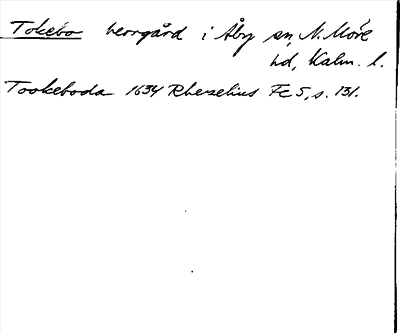 Tokebo herrgård i Åby sn, N. Möre
hd, Kalm. l.
Tookeboda 1634 Rhezelius Fc 5, s. 131.